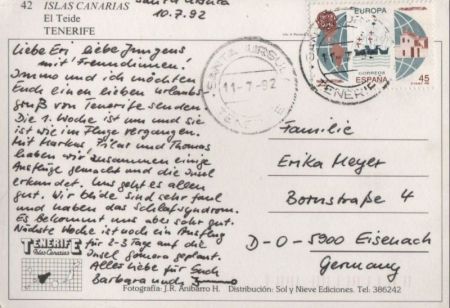 42 ISLAS CANARIAS
El Teide
TENERIFE
Santa Ursula
10.7.92
Liebe Eri, liebe Jungens
mit Freundinnen!
Immo und ich möchten
Euch einen lieben Urlaubs-
gruß von Teneriffa senden.
Die 1. Woche ist um und sie
ist wie im Fluge vergangen.
Mit Markus, Pilar und Thomas
haben wir zusammen einige
Ausflüge gemacht und die Insel
erkundet. Uns geht es allen
gut. Wir beide sind sehr faul
und haben das Schlafsyndrom.
Es bekommt uns aber sehr gut.
Nächste Woche ist noch ein Ausflug
für 2-3 Tage auf die
Insel Gomera geplant.
Alles Liebe für Euch
Barbara und Immo
TENERIFE
Islas Canarias
Fotografía: J.R. Anibarro H. Distribución: Sol y Nieve Ediciones. Tel: 386242
EUROPA
CORREOS
ESPAÑA
45
SANTA URSULA
11-7-92
TENERIFE
TENERIFE
Familie
Erika Meyer
Bornstraße 4
D-O-5900 Eisenach
Germany